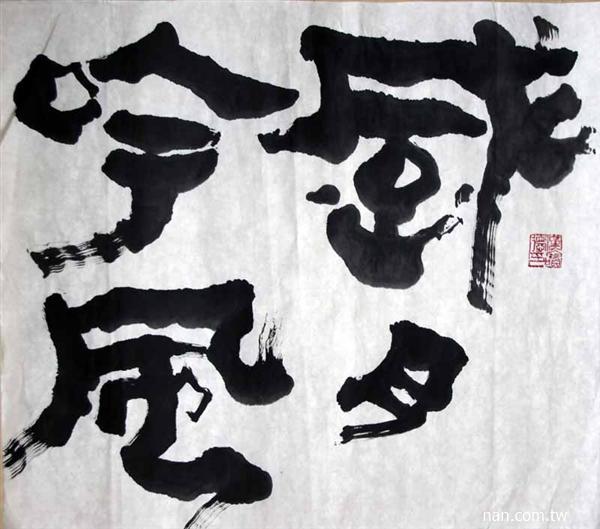 感月
吟風
nan.com.tw